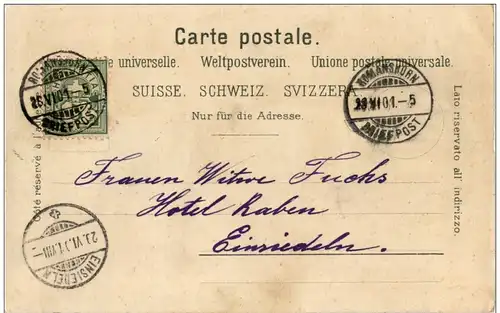 Carte postale.
universelle. Weltpostverein. Unione postale universale.
SUISSE. SCHWEIZ. SVIZZERA
Nur für die Adresse.
ROMANSHORN
26.VI.01.-5
BRIEFPOST
ROMANSHORN
VI 01.-5
BRIEFPOST
Côté réservé à l'a
Lato riservato all' indirizzo.
Frauen Witwe Fuchs
Hotel Raben
Einsiedeln.
VI. VIII-
EINSIEDELN